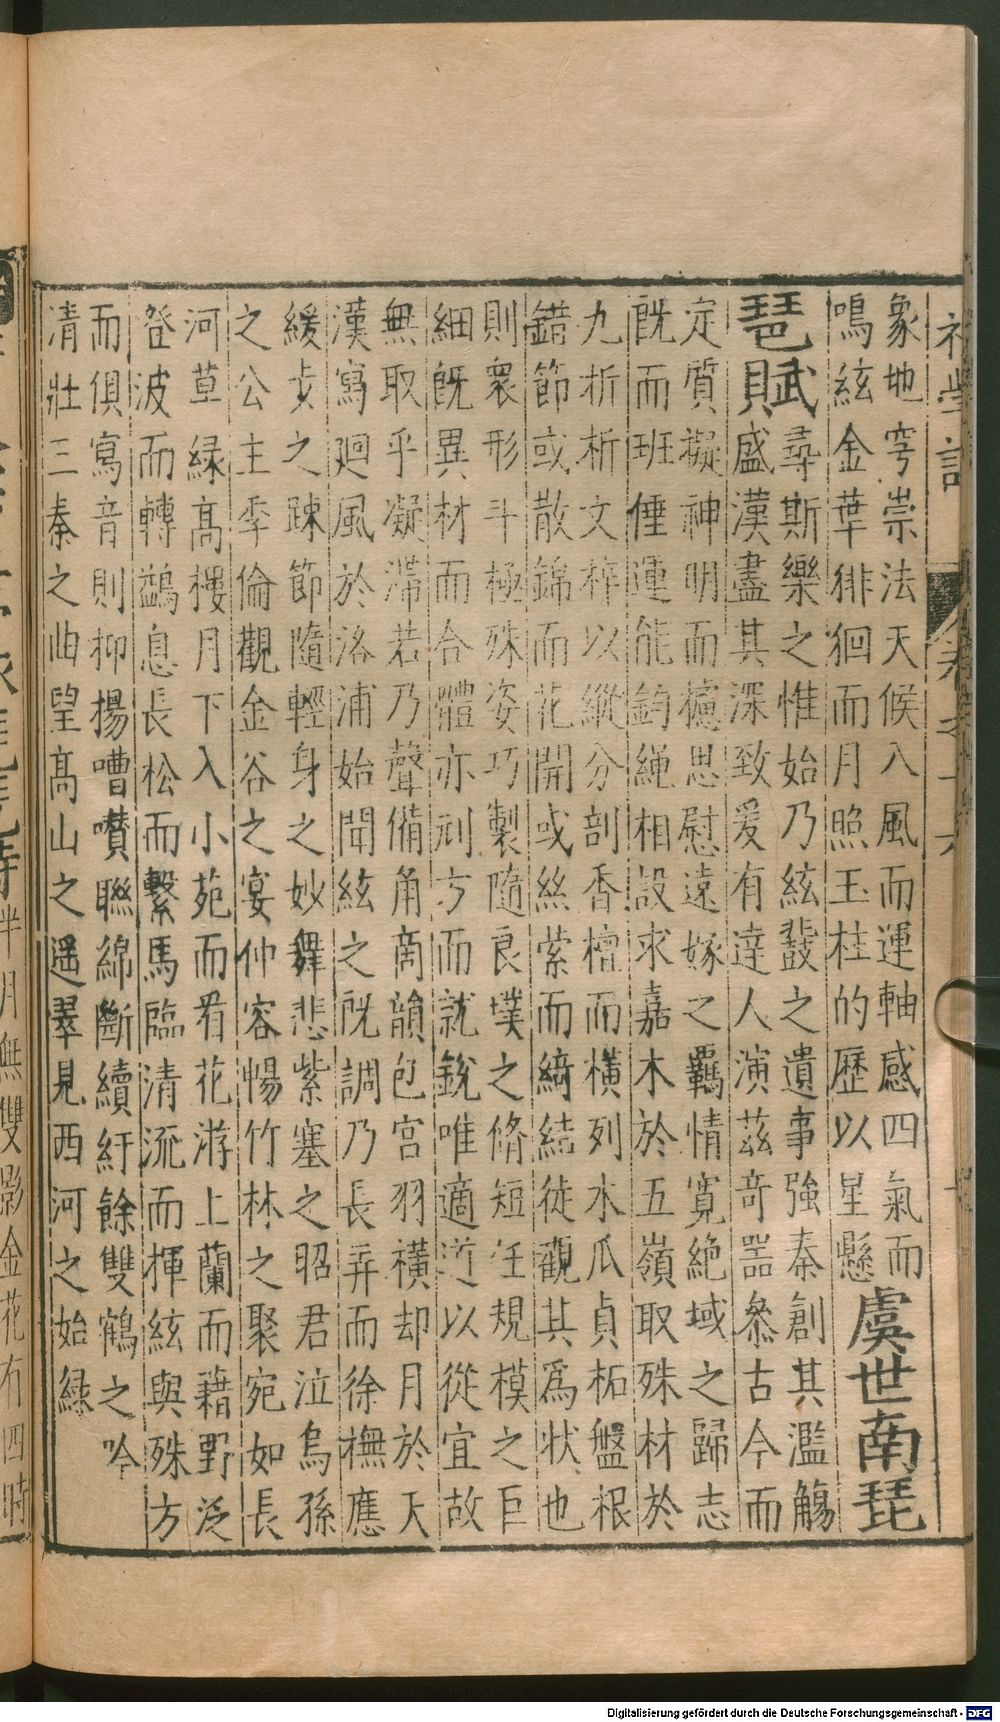 初學記 卷之十六
象地穹崇法天候入風而運軸感四氣而
鳴絃金葉徘徊而月照玉柱的歷以星懸
虞世南琵
琶賦
尋斯樂之惟始乃絃鼗之遺事強秦創其濫觴
盛漢盡其深致爰有達人演茲奇噐叅古今而
定質擬神明而攄思慰遠嫁之羈情寛絶域之歸志
旣而班倕運能鈎繩相設求嘉木於五嶺取殊材於
九析析文梓以縱分剖香檀而橫列水瓜貞柘盤根
錯節或散錦而花開或絲縈而綺結徒觀其爲狀也
則衆形斗極殊姿巧製隨良墣之脩短任規模之巨
細旣異材而合體亦刓方而就銳唯適道以從宜故
無取乎凝滯若乃聲備角商韻包宮羽橫却月於天
漢寫廻風於洛浦始聞絃之旣調乃長弄而徐撫應
緩步之踈節隨輕身之妙舞悲紫塞之昭君泣烏孫
之公主季倫觀金谷之宴仲容暢竹林之聚宛如長
河草緑高樓月下入小苑而看花游上蘭而藉野泛
咎波而轉鷁息長松而繫馬臨清流而揮絃與殊方
而俱寫音則抑揚嘈囋聯綿斷續紆餘雙鶴之吟
清壯三秦之曲望高山之遥翠見西河之始緑
半月無雙影金花有四時
Digitalisierung gefördert durch die Deutsche Forschungsgemeinschaft - DFG